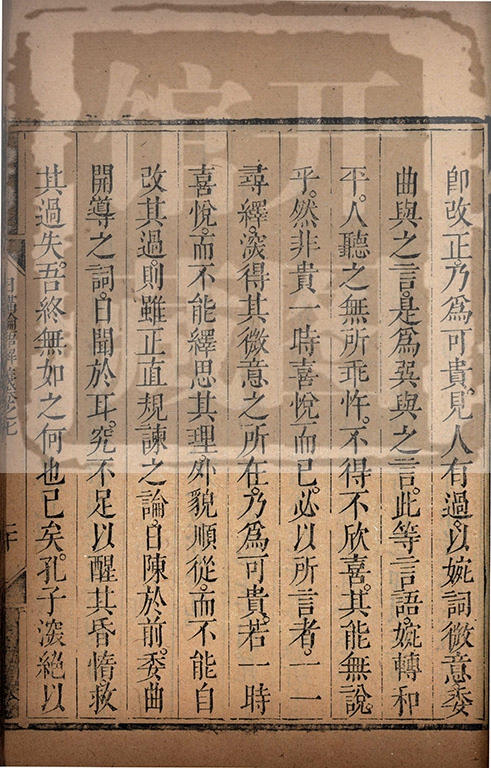 卽改正。乃爲可貴。見人有過。以婉詞微意委
曲與之言。是爲巽與之言。此等言語。婉轉和
平。人聽之無所乖忤。不得不欣喜。其能無說
乎。然非貴一時喜悅而已。必以所言者。一一
尋繹。深得其微意之所在。乃爲可貴。若一時
喜悅。而不能繹思其理。外貌順從。而不能自
改其過。則雖正直規諫之論。日陳於前。委曲
開導之詞。日聞於耳。究不足以醒其昏惰。救
其過失。吾終無如之何也已矣。孔子深絕以
日講論語解義卷之七